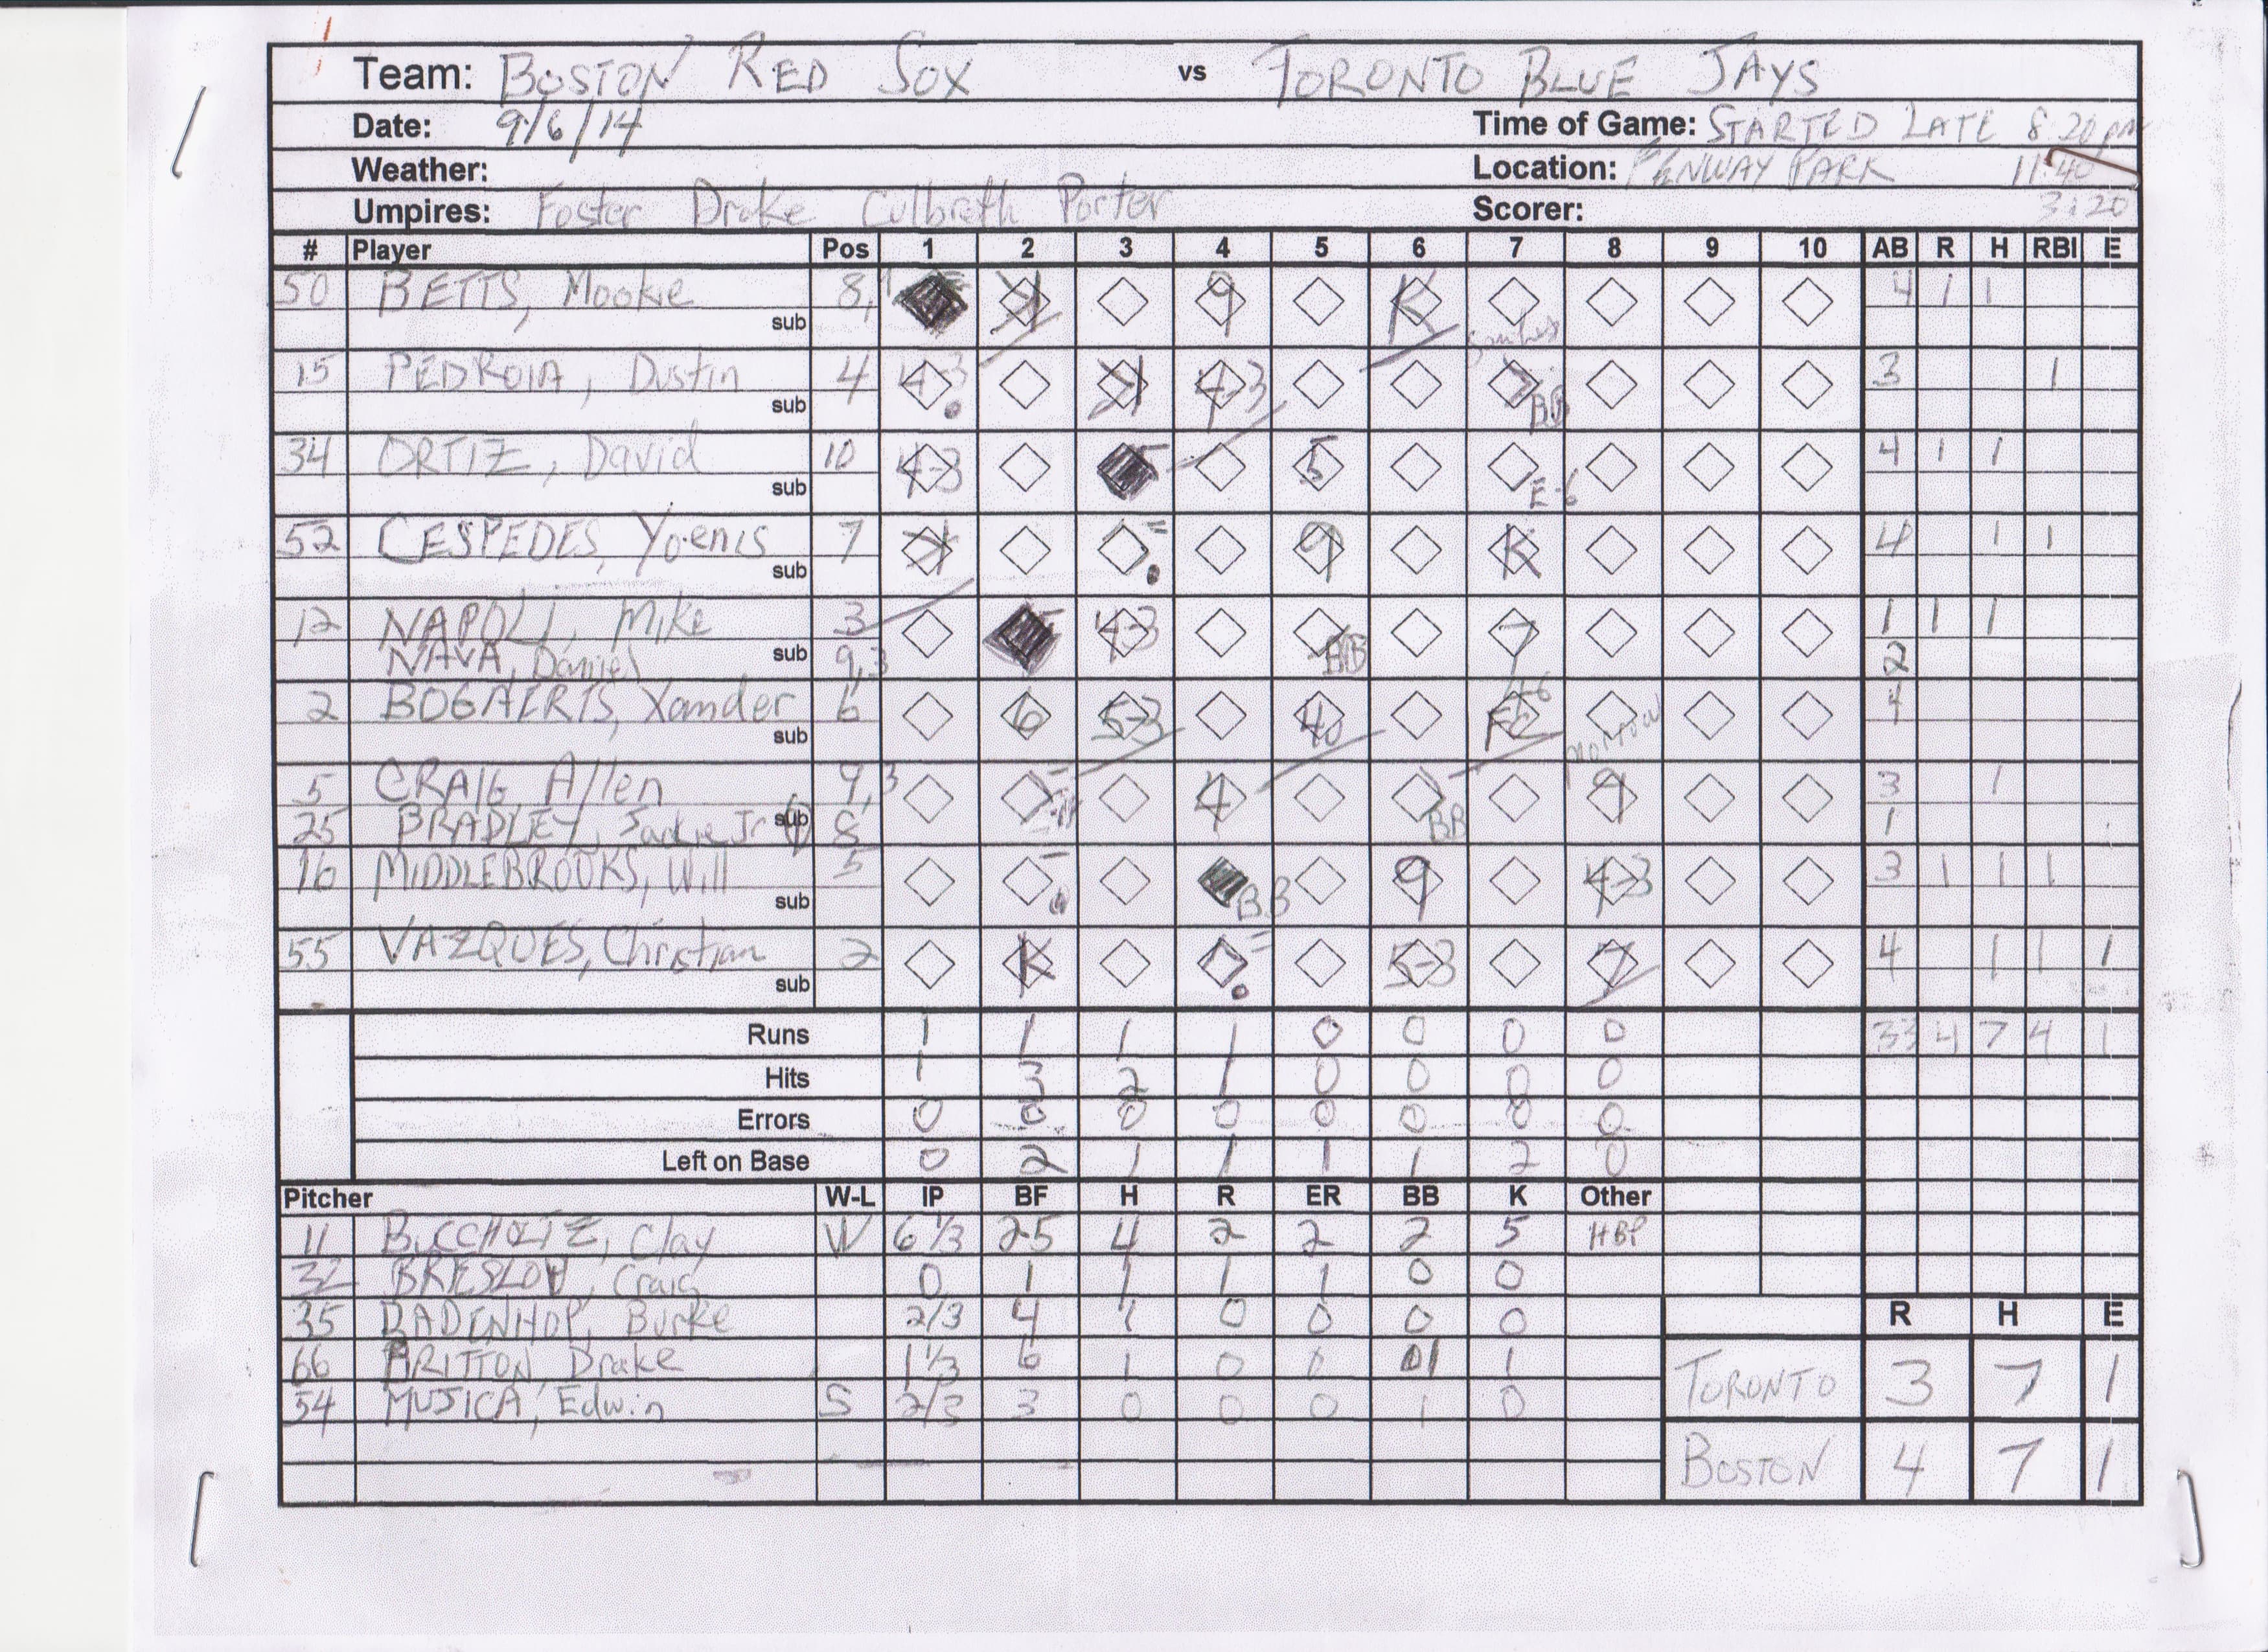 Team: BOSTON RED SOX vs TORONTO BLUE JAYS
Date: 9/6/14 Time of Game: STARTED LATE 8:20 pm
Weather: Location: FENWAY PARK 11:40
Umpires: Foster Drake Culbreth Porter Scorer: 3:20
# Player Pos 1 2 3 4 5 6 7 8 9 10 AB R H RBI E
50 BETTS, Mookie 8, 9 K 4 1 1
sub
15 PEDROIA, Dustin 4 4-3 4-3 BB 3 1
sub
34 ORTIZ, David 10 4-3 5 E-6 4 1 1
sub
52 CESPEDES, Yoenis 7 K 9 K 4 1 1
sub
12 NAPOLI, Mike 3 4-3 7 1 1 1
NAVA, Daniel sub 9,3 BB 2
2 BOGAERTS, Xander 6 6 5-3 4 FC 4-6 4
sub
5 CRAIG, Allen 9,3 4 BB 9 3 1
25 BRADLEY, Jackie Jr sub 8 1
16 MIDDLEBROOKS, Will 5 BB 9 4-3 3 1 1 1
sub
55 VAZQUES, Christian 2 K 5-3 7 4 1 1 1
sub
Runs 1 1 1 1 0 0 0 0 33 4 7 4 1
Hits 1 3 2 1 0 0 0 0
Errors 0 0 0 0 0 0 0 0
Left on Base 0 2 1 1 1 1 2 0
Pitcher W-L IP BF H R ER BB K Other
11 BUCCHOLTZ, Clay W 6 1/3 25 4 2 2 2 5 HBP
32 BRESLOW, Craig 0 1 1 1 1 0 0
35 BADENHOP, Burke 2/3 4 1 0 0 0 0
R H E
66 BRITTON, Drake 1 1/3 6 1 0 0 1 1
TORONTO 3 7 1
54 MUJICA, Edwin S 2/3 3 0 0 0 1 0
BOSTON 4 7 1